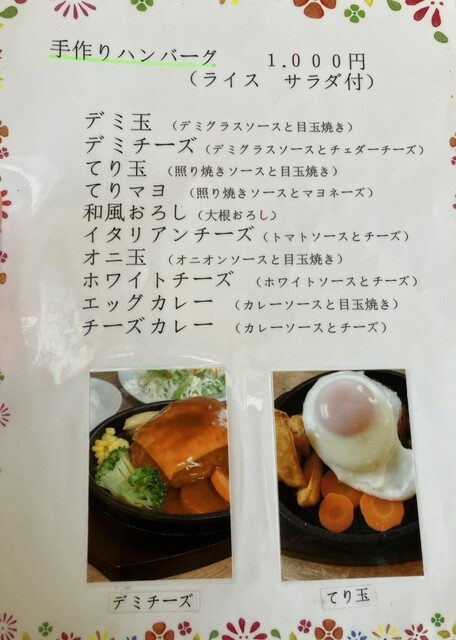 手作りハンバーグ　1.000円
（ライス　サラダ付）
デミ玉　（デミグラスソースと目玉焼き）
デミチーズ（デミグラスソースとチェダーチーズ）
てり玉　（照り焼きソースと目玉焼き）
てりマヨ　（照り焼きソースとマヨネーズ）
和風おろし（大根おろし）
イタリアンチーズ（トマトソースとチーズ）
オニ玉　（オニオンソースと目玉焼き）
ホワイトチーズ　（ホワイトソースとチーズ）
エッグカレー　（カレーソースと目玉焼き）
チーズカレー　（カレーソースとチーズ）
デミチーズ　てり玉